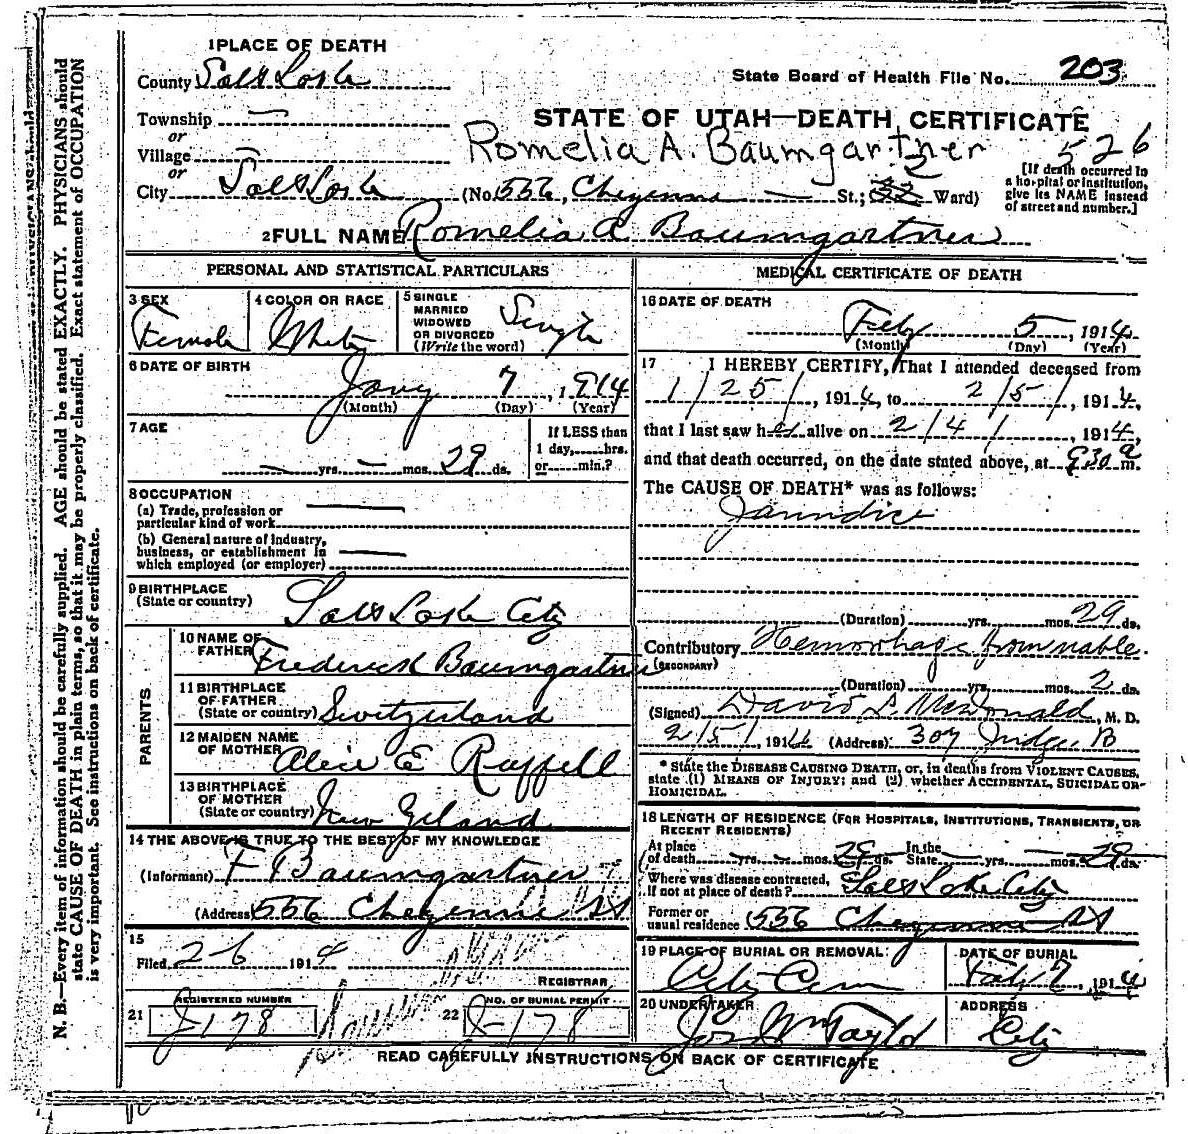 1 PLACE OF DEATH
County Salt Lake
State Board of Health File No. 203
Township —
or
Village —
or
City Salt Lake
STATE OF UTAH—DEATH CERTIFICATE
Romelia A. Baumgartner 526
(No. 556, Cheyenne — St.; 2 Ward)
[If death occurred in
a hospital or institution,
give its NAME instead
of street and number.]
2 FULL NAME Romelia A Baumgartner
PERSONAL AND STATISTICAL PARTICULARS
3 SEX
Female
4 COLOR OR RACE
White
5 SINGLE
MARRIED
WIDOWED
OR DIVORCED
(Write the word)
Single
6 DATE OF BIRTH
Jany 7, 1914
(Month) (Day) (Year)
7 AGE
— yrs. — mos. 29 ds.
If LESS than
1 day,......hrs.
or......min.?
8 OCCUPATION
(a) Trade, profession or
particular kind of work —
(b) General nature of industry,
business, or establishment in
which employed (or employer) —
9 BIRTHPLACE
(State or country)
Salt Lake City
PARENTS
10 NAME OF
FATHER Frederick Baumgartner
11 BIRTHPLACE
OF FATHER
(State or country) Switzerland
12 MAIDEN NAME
OF MOTHER Alice E
13 BIRTHPLACE
OF MOTHER
(State or country) New Zeland
14 THE ABOVE IS TRUE TO THE BEST OF MY KNOWLEDGE
(Informant) F Baumgartner
(Address) 556 Cheyenne St
15
Filed 2-6 1914
REGISTRAR
21 REGISTERED NUMBER
J-178
22 NO. OF BURIAL PERMIT
J-178
MEDICAL CERTIFICATE OF DEATH
16 DATE OF DEATH
Feby 5, 1914
(Month) (Day) (Year)
17 I HEREBY CERTIFY, That I attended deceased from
1/25/, 1914, to 2/5/, 1914,
that I last saw her alive on 2/4/, 1914,
and that death occurred, on the date stated above, at 930 a m.
The CAUSE OF DEATH* was as follows:
Jaundice
(Duration) yrs. mos. 29 ds.
Contributory Hemorrhage from nable.
(SECONDARY)
(Duration) yrs. mos. 2 ds.
(Signed) David L McDonald, M. D.
2/5/, 1914 (Address) 307 Judge B
* State the DISEASE CAUSING DEATH, or, in deaths from VIOLENT CAUSES,
state (1) MEANS OF INJURY; and (2) whether ACCIDENTAL, SUICIDAL OR
HOMICIDAL.
18 LENGTH OF RESIDENCE (FOR HOSPITALS, INSTITUTIONS, TRANSIENTS, OR
RECENT RESIDENTS)
At place
of death — yrs. — mos. 29 ds. In the
State — yrs. — mos. 29 ds.
Where was disease contracted,
if not at place of death? Salt Lake City
Former or
usual residence 556 Cheyenne St
19 PLACE OF BURIAL OR REMOVAL
City Cem
DATE OF BURIAL
Feby 7, 1914
20 UNDERTAKER
Jos Wm Taylor
ADDRESS
City
READ CAREFULLY INSTRUCTIONS ON BACK OF CERTIFICATE
N. B.—Every item of information should be carefully supplied. AGE should be stated EXACTLY. PHYSICIANS should
state CAUSE OF DEATH in plain terms, so that it may be properly classified. Exact statement of OCCUPATION
is very important. See instructions on back of certificate.